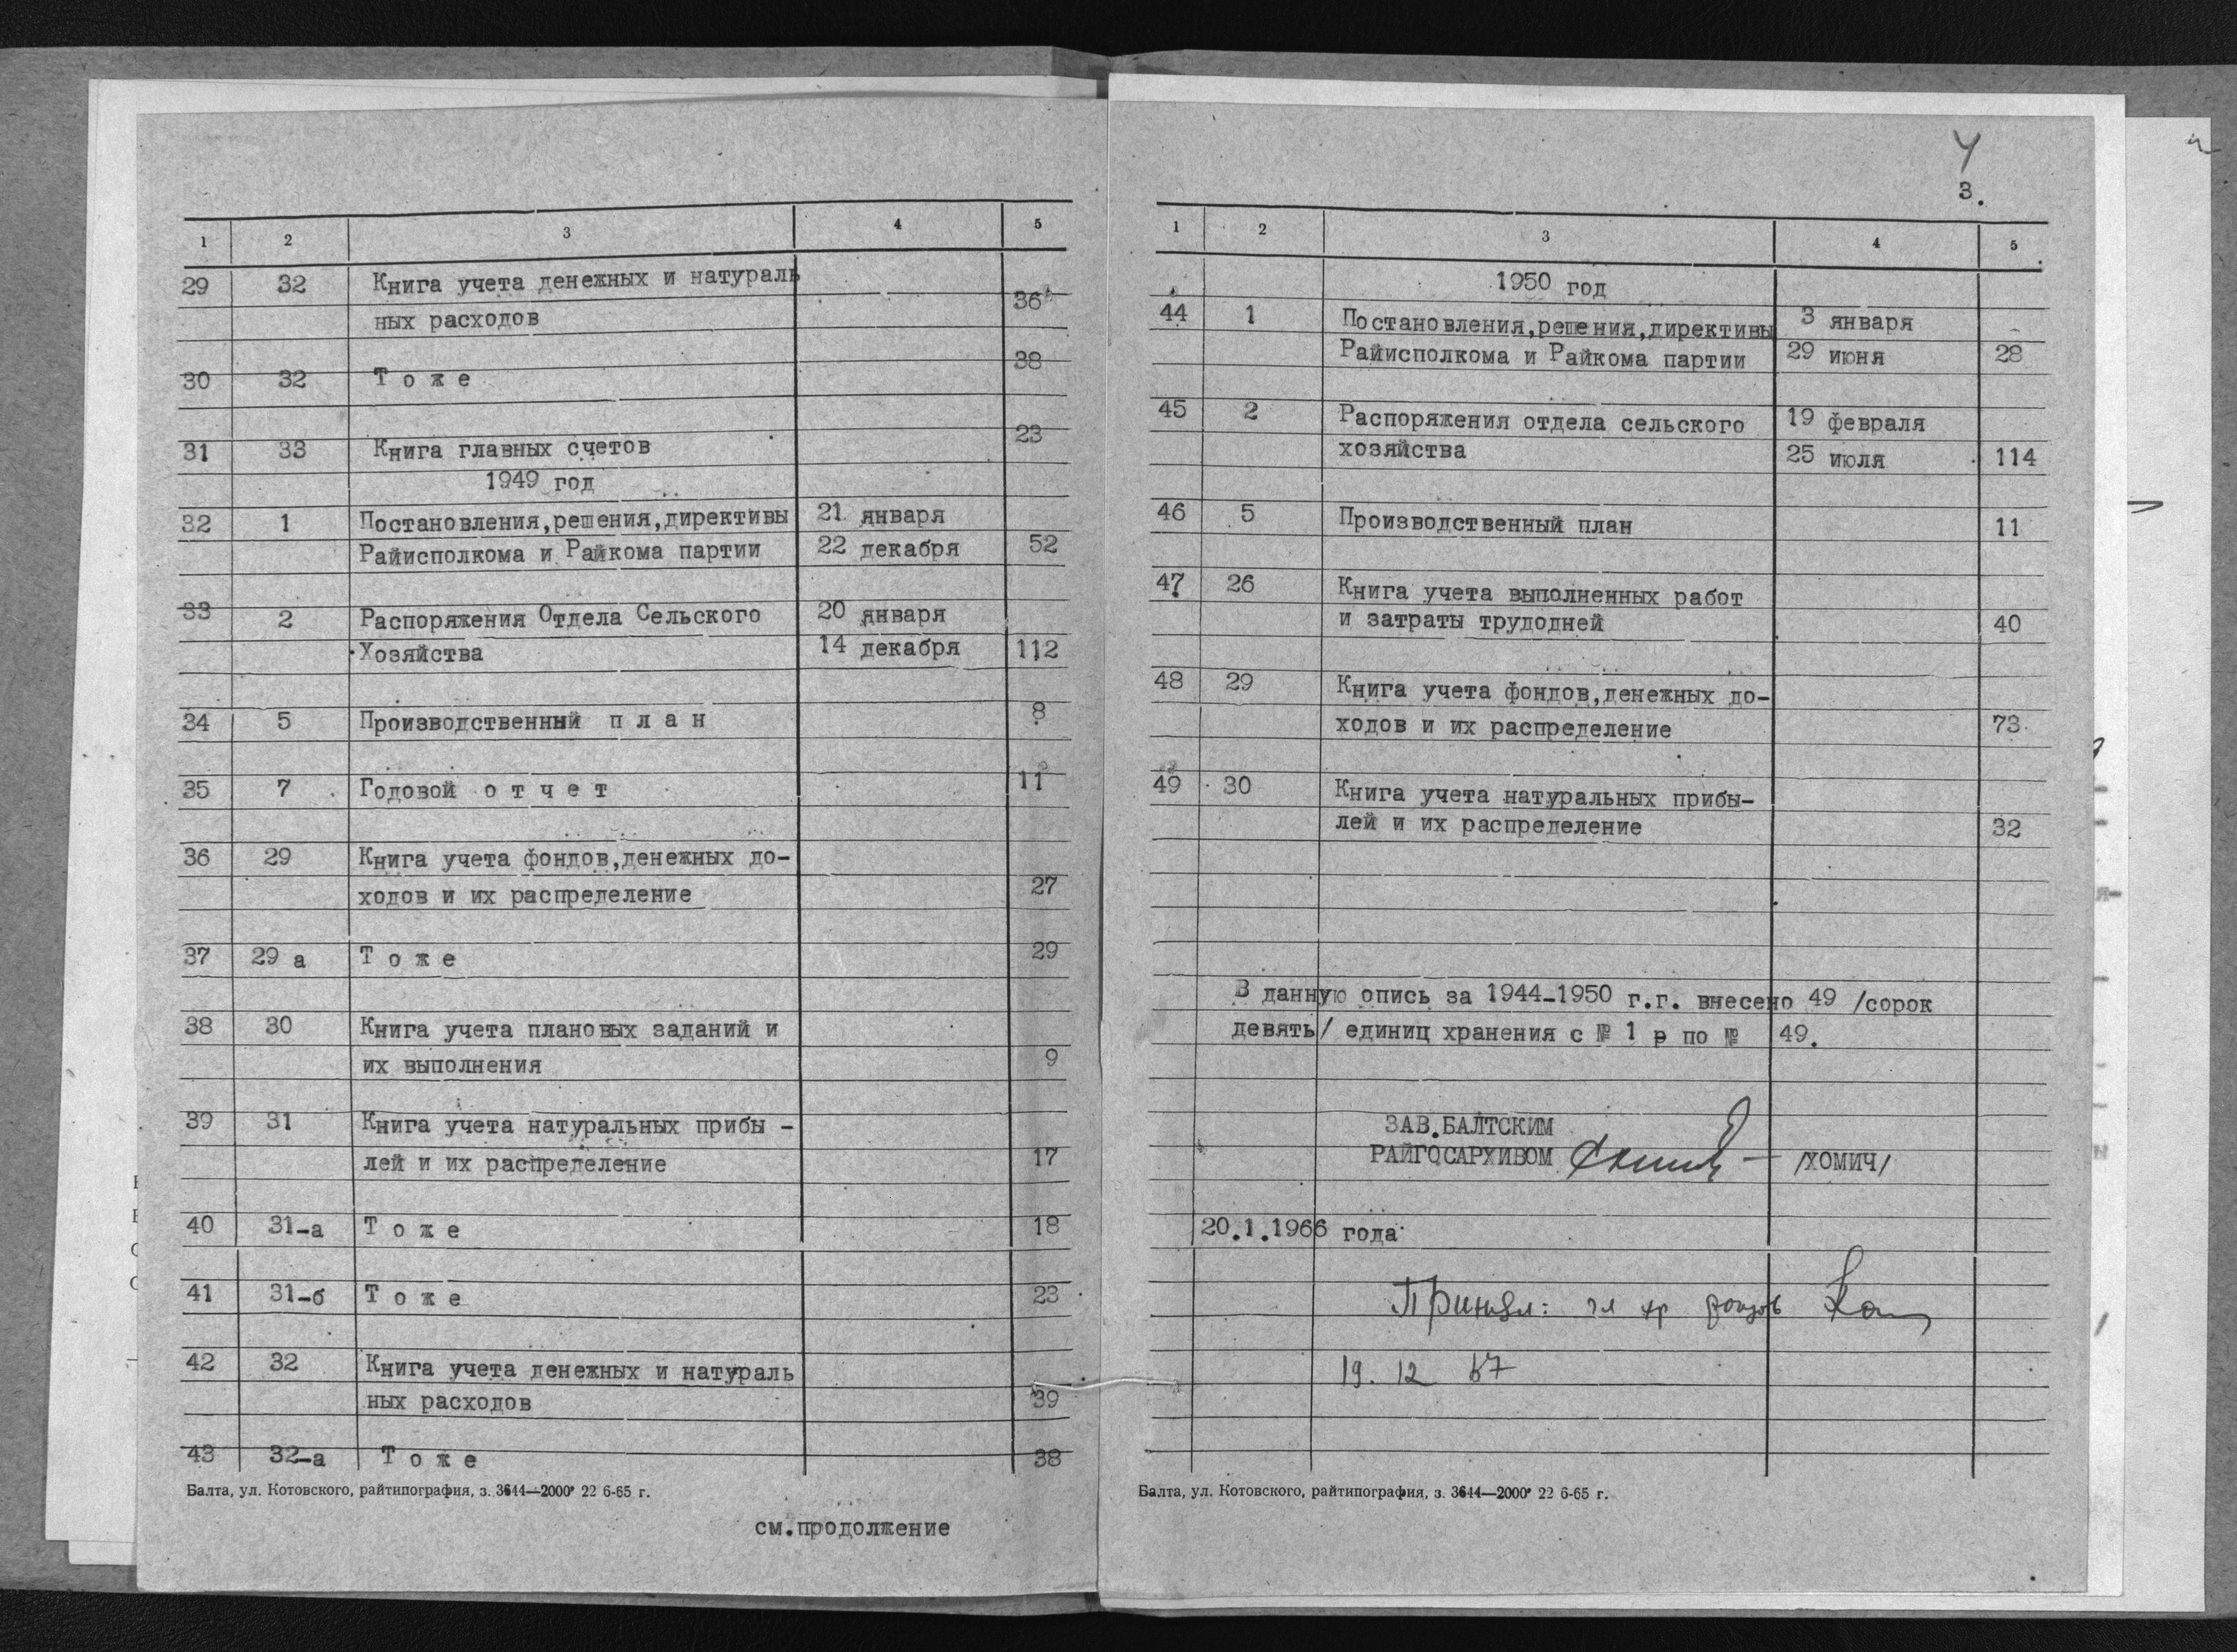 1 2 3 4 5
29 32 Книга учета денежных и натураль
ных расходов 36
30 32 Т о ж е 38
31 33 Книга главных счетов 23
1949 год
32 1 Постановления,решения,директивы 21 января
Райисполкома и Райкома партии 22 декабря 52
33 2 Распоряжения Отдела Сельского 20 января
Хозяйства 14 декабря 112
34 5 Производственный п л а н 8
35 7 Годовой о т ч е т 11
36 29 Книга учета фондов,денежных до-
ходов и их распределение 27
37 29 а Т о ж е 29
38 30 Книга учета плановых заданий и
их выполнения 9
39 31 Книга учета натуральных прибы -
лей и их распределение 17
40 31-а Т о ж е 18
41 31-б Т о ж е 23
42 32 Книга учета денежных и натураль
ных расходов 39
43 32-а Т о ж е 38
Балта, ул. Котовского, райтипография, з. 3644—2000 22 6-65 г.
см.продолжение
4
3.
1 2 3 4 5
1950 год
44 1 Постановления,решения,директивы 3 января
Райисполкома и Райкома партии 29 июня 28
45 2 Распоряжения отдела сельского 19 февраля
хозяйства 25 июля 114
46 5 Производственный план 11
47 26 Книга учета выполненных работ
и затраты трудодней 40
48 29 Книга учета фондов,денежных до-
ходов и их распределение 73
49 30 Книга учета натуральных прибы-
лей и их распределение 32
В данную опись за 1944-1950 г.г. внесено 49 /сорок
девять/ единиц хранения с № 1 р по № 49.
ЗАВ.БАЛТСКИМ
РАЙГОСАРХИВОМ /ХОМИЧ/
20.1.1966 года
Принял: гл хр фондов
19. 12 67
Балта, ул. Котовского, райтипография, з. 3644—2000 22 6-65 г.